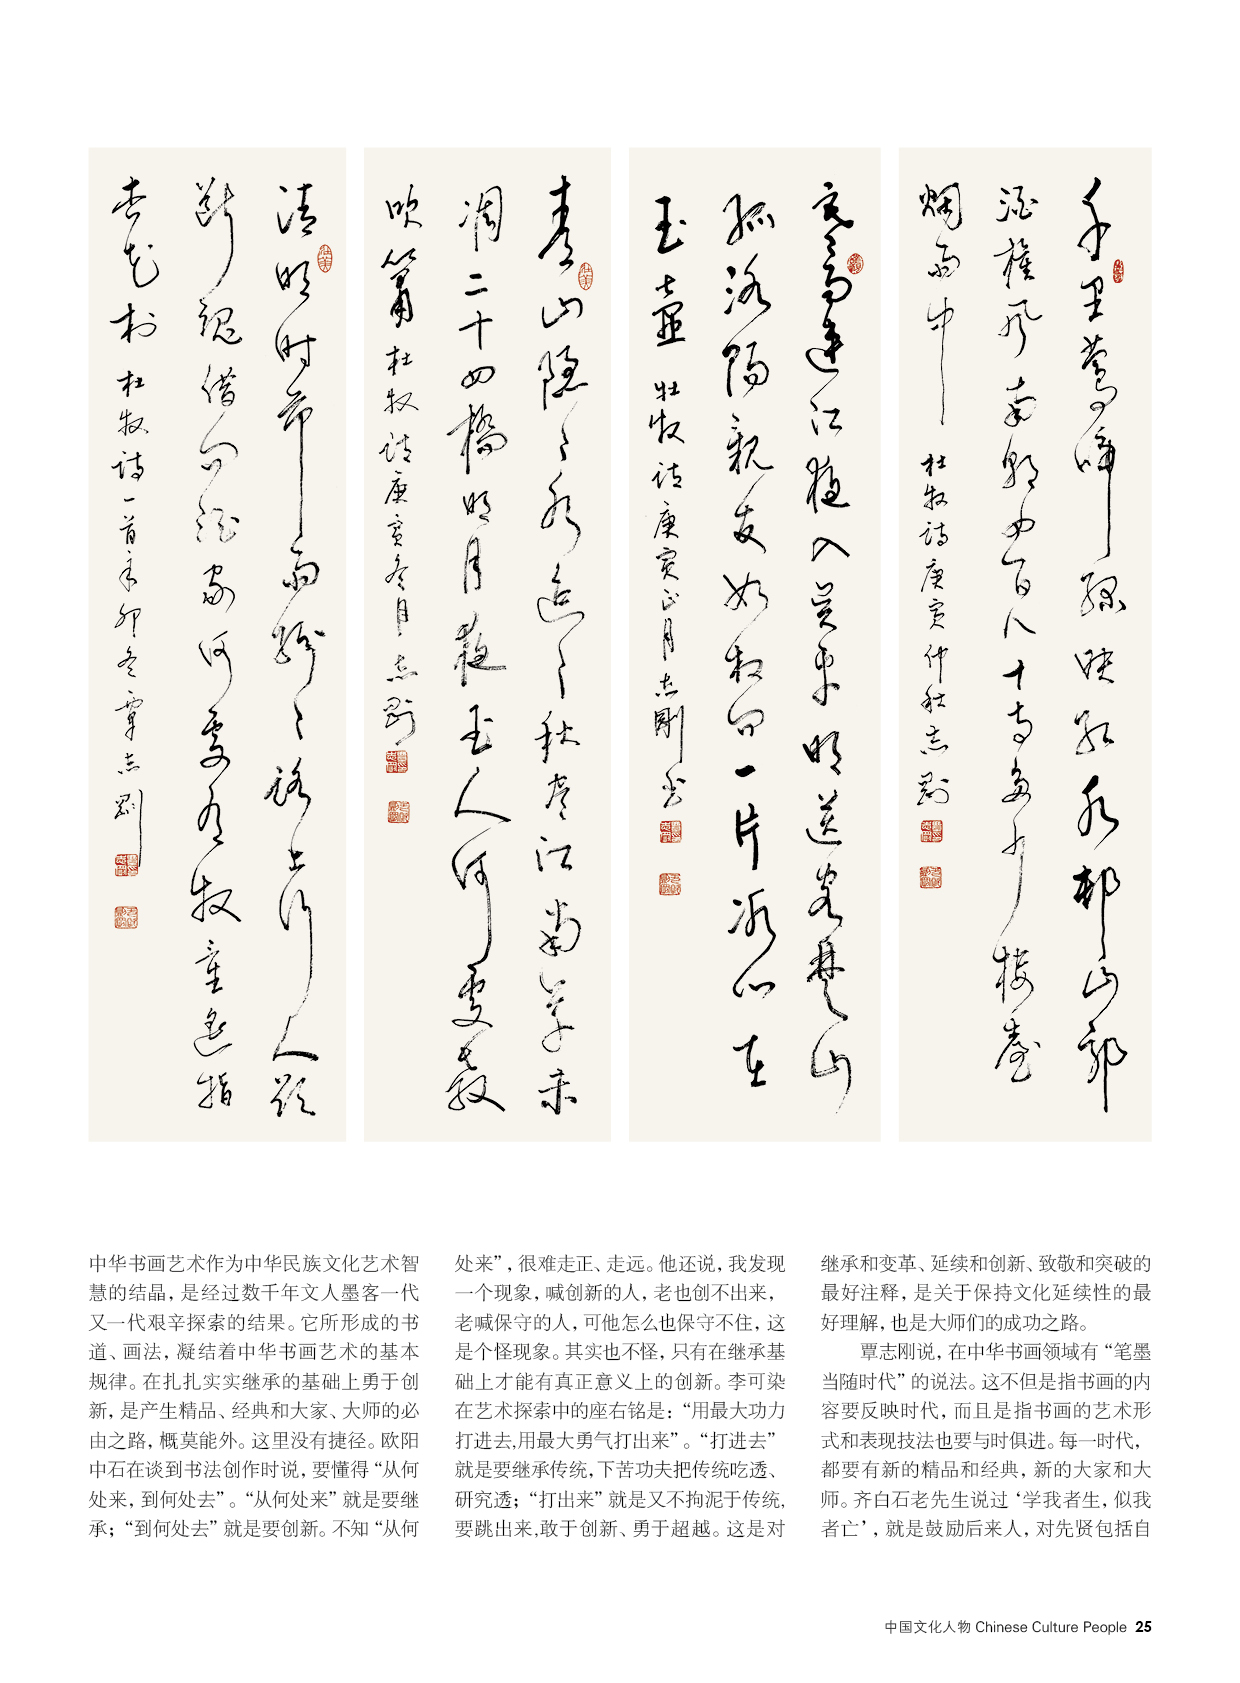 千里鶯啼绿映红水邨山郭
酒旗风南朝四百八十寺多少楼臺
烟雨中 杜牧诗庚寅仲秋志刚
寒雨連江夜入吴平明送客楚山
孤洛陽親友如相问一片冰心在
玉壺 杜牧诗庚寅正月志剛书
青山隐々水迢々秋尽江南草未
凋二十四橋明月夜玉人何處教
吹簫 杜牧诗庚寅冬月志刚
清明时节雨纷々路上行人欲
断魂借问酒家何處有牧童遥指
杏花村 杜牧诗一首辛卯冬覃志刚
中华书画艺术作为中华民族文化艺术智
慧的结晶，是经过数千年文人墨客一代
又一代艰辛探索的结果。它所形成的书
道、画法，凝结着中华书画艺术的基本
规律。在扎扎实实继承的基础上勇于创
新，是产生精品、经典和大家、大师的必
由之路，概莫能外。这里没有捷径。欧阳
中石在谈到书法创作时说，要懂得“从何
处来，到何处去”。“从何处来”就是要继
承；“到何处去”就是要创新。不知“从何
处来”，很难走正、走远。他还说，我发现
一个现象，喊创新的人，老也创不出来，
老喊保守的人，可他怎么也保守不住，这
是个怪现象。其实也不怪，只有在继承基
础上才能有真正意义上的创新。李可染
在艺术探索中的座右铭是：“用最大功力
打进去,用最大勇气打出来”。“打进去”
就是要继承传统，下苦功夫把传统吃透、
研究透；“打出来”就是又不拘泥于传统，
要跳出来,敢于创新、勇于超越。这是对
继承和变革、延续和创新、致敬和突破的
最好注释，是关于保持文化延续性的最
好理解，也是大师们的成功之路。
覃志刚说，在中华书画领域有“笔墨
当随时代”的说法。这不但是指书画的内
容要反映时代，而且是指书画的艺术形
式和表现技法也要与时俱进。每一时代，
都要有新的精品和经典，新的大家和大
师。齐白石老先生说过‘学我者生，似我
者亡’，就是鼓励后来人，对先贤包括自
中国文化人物 Chinese Culture People 25